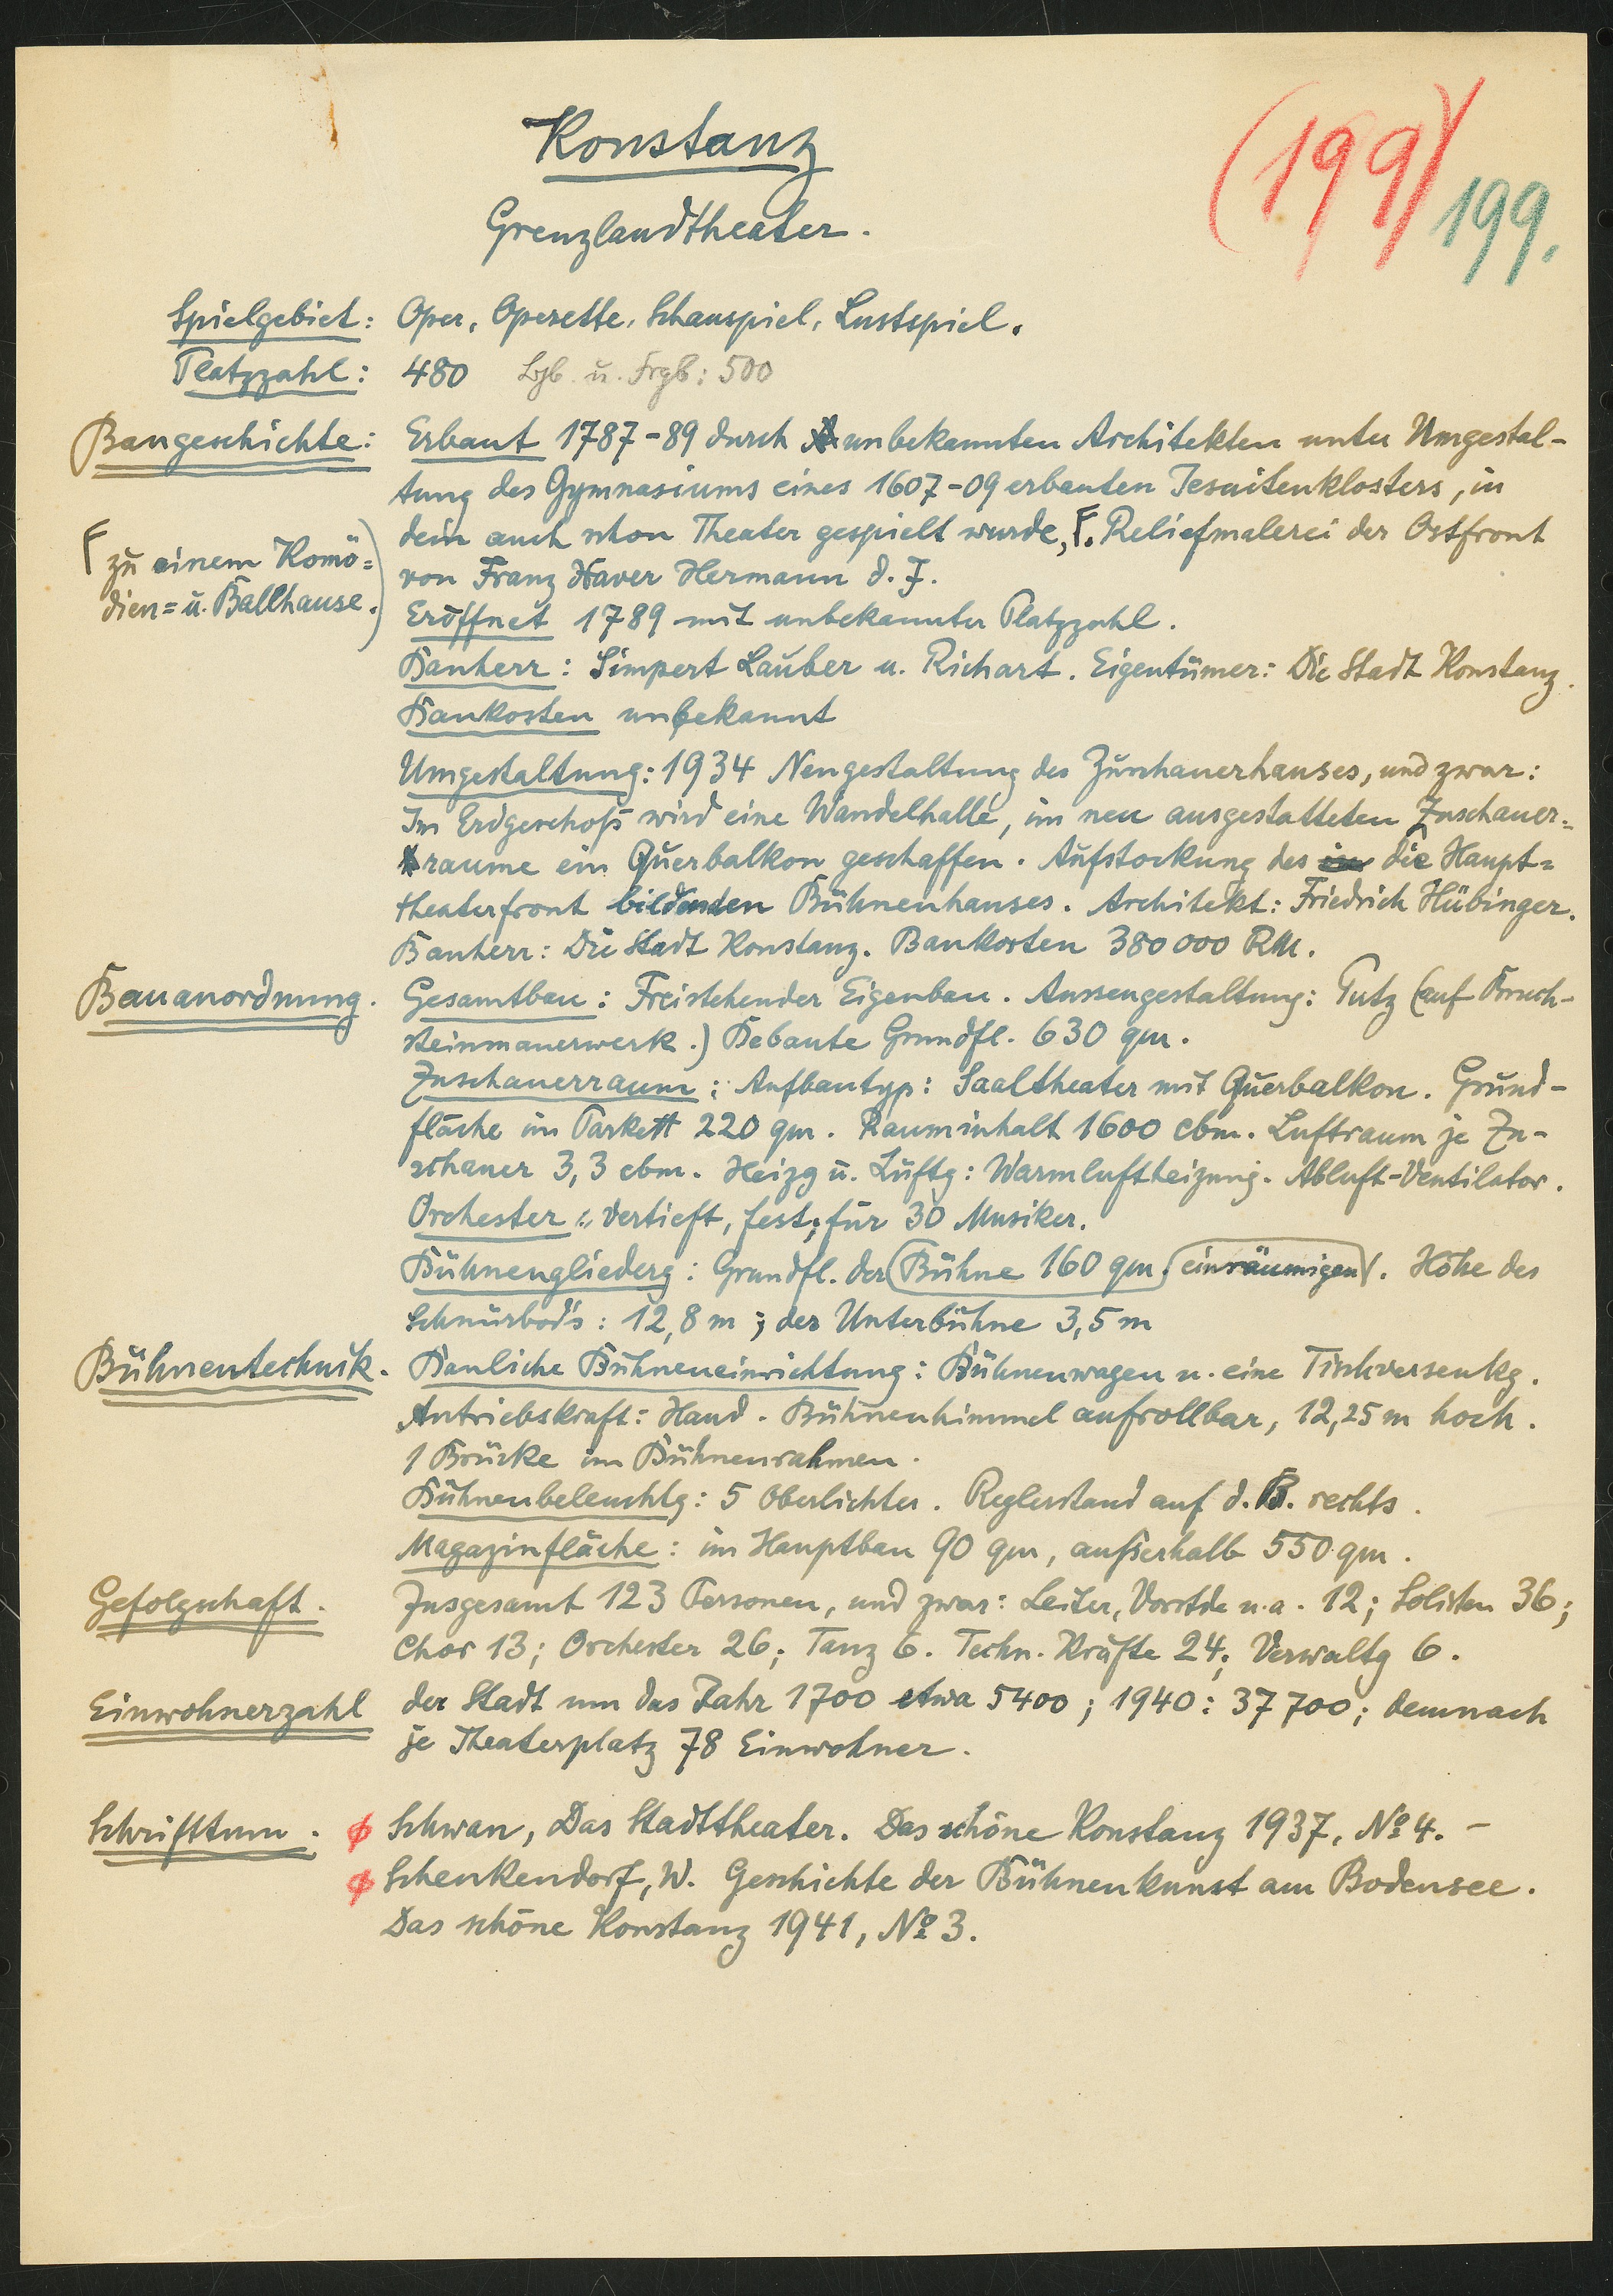 Konstanz
(199) 199.
Grenzlandtheater.
Spielgebiet: Oper, Operette, Schauspiel, Lustspiel.
Platzzahl: 480 u. Frgb: 500
Baugeschichte: Erbaut 1787-89 durch unbekannten Architekten unter Umgestal-
tung des Gymnasiums eines 1607-09 erbauten Jesuitenklosters, in
dem auch schon Theater gespielt wurde, F. Reliefmalerei der Ostfront
F zu einem Komö=
dien= u. Ballhause.)
von Franz Xaver Hermann d. J.
Eröffnet 1789 mit unbekannter Platzzahl.
Bauherr: Simpert Lauber u. Richart. Eigentümer: Die Stadt Konstanz.
Baukosten unbekannt
Umgestaltung: 1934 Neugestaltung des Zuschauerhauses, und zwar:
Im Erdgeschoß wird eine Wandelhalle, im neu ausgestatteten Zuschauer=
raume ein Querbalkon geschaffen. Aufstockung des die Haupt=
theaterfront bildenden Bühnenhauses. Architekt: Friedrich Hübinger.
Bauherr: Die Stadt Konstanz. Baukosten 380 000 RM.
Bauanordnung. Gesamtbau: Freistehender Eigenbau. Aussengestaltung: Putz (auf Bruch-
steinmauerwerk.) Bebaute Grundfl. 630 qm.
Zuschauerraum: Aufbautyp: Saaltheater mit Querbalkon. Grund-
fläche im Parkett 220 qm. Rauminhalt 1600 cbm. Luftraum je Zu-
schauer 3,3 cbm. Heizg u. Lüftg: Warmluftheizung. Abluft-Ventilator.
Orchester: Vertieft, fest; für 30 Musiker.
Bühnengliederg: Grundfl. der (Bühne 160 qm, einräumigen). Höhe des
Schnürbod's: 12,8 m; der Unterbühne 3,5 m
Bühnentechnik. Bauliche Bühneneinrichtung: Bühnenwagen u. eine Tischversenkg.
Antriebskraft: Hand. Bühnenhimmel aufrollbar, 12,25 m hoch.
1 Brücke im Bühnenrahmen.
Bühnenbeleuchtg: 5 Oberlichter. Reglerstand auf d. B. rechts.
Magazinfläche: im Hauptbau 90 qm, außerhalb 550 qm.
Gefolgschaft. Insgesamt 123 Personen, und zwar: Leiter, Vorstde u. a. 12; Solisten 36;
Chor 13; Orchester 26; Tanz 6. Techn. Kräfte 24; Verwaltg 6.
Einwohnerzahl der Stadt um das Jahr 1700 etwa 5400; 1940: 37 700; demnach
je Theaterplatz 78 Einwohner.
Schrifttum. ϕ Schwan, Das Stadttheater. Das schöne Konstanz 1937, Nº 4. -
ϕ Schenkendorf, W. Geschichte der Bühnenkunst am Bodensee.
Das schöne Konstanz 1941, Nº 3.